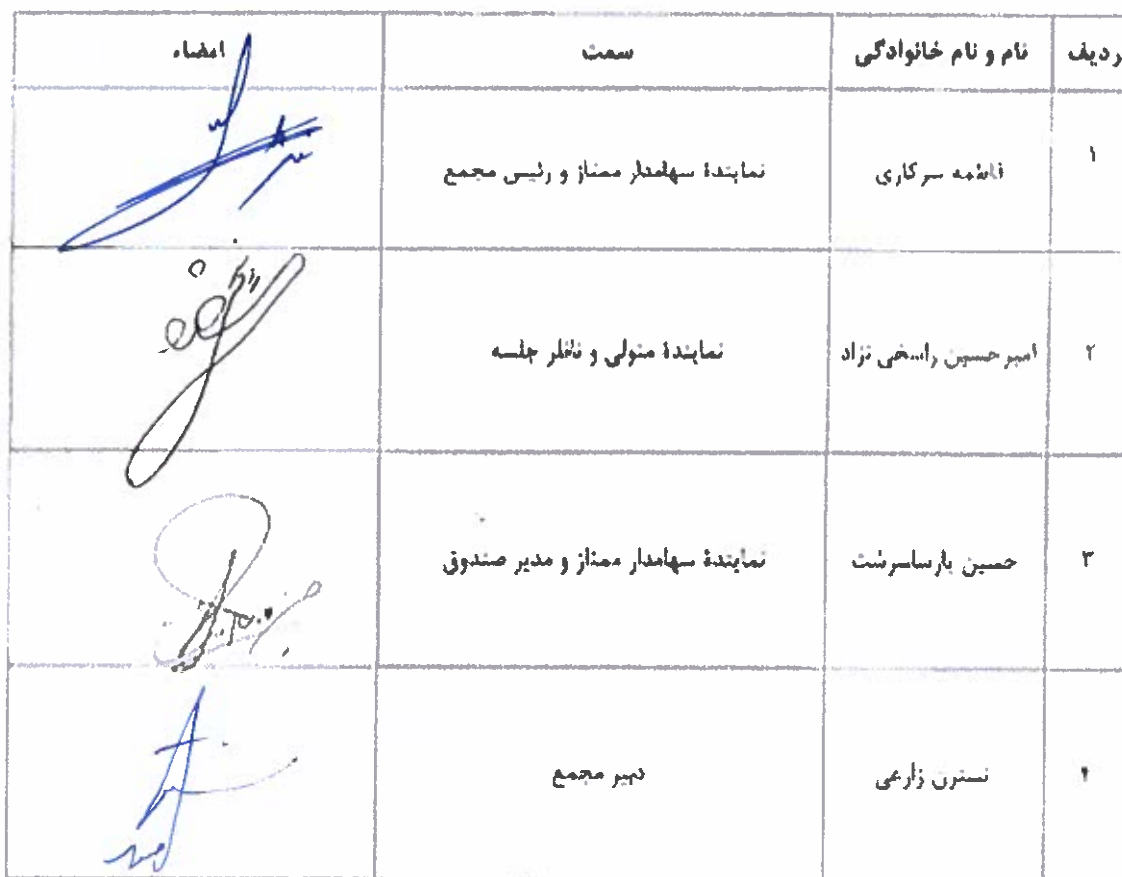 ردیف نام و نام خانوادگی سمت امضاء
۱ فاطمه سرکاری نمایندۀ سهامدار ممتاز و رئیس مجمع
۲ امیرحسین راسخی نژاد نمایندۀ متولی و ناظر جلسه
۳ حسین پارساسرشت نمایندۀ سهامدار ممتاز و مدیر صندوق
۴ نسترن زارعی دبیر مجمع